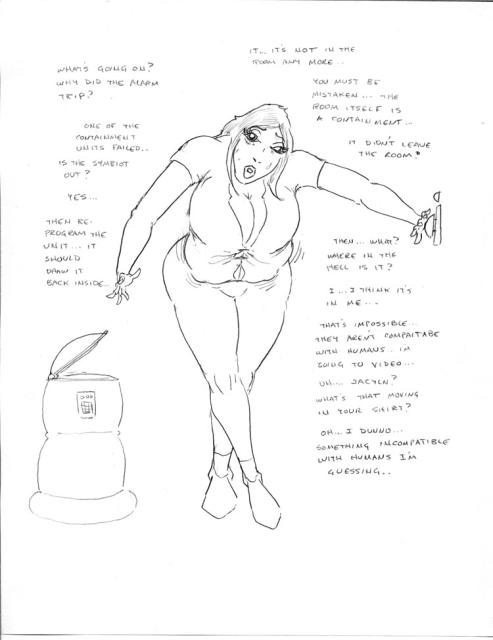 WHAT'S GOING ON?
WHY DID THE ALARM
TRIP?
ONE OF THE
CONTAINMENT
UNITS FAILED..
IS THE SYMBIOT
OUT?
YES...
THEN RE-
PROGRAM THE
UNIT... IT
SHOULD
DRAW IT
BACK INSIDE..
IT... IT'S NOT IN THE
ROOM ANY MORE..
YOU MUST BE
MISTAKEN... THE
ROOM ITSELF IS
A CONTAINMENT...
IT DIDN'T LEAVE
THE ROOM.
THEN... WHAT?
WHERE IN THE
HELL IS IT?
I... I THINK IT'S
IN ME...
THAT'S IMPOSSIBLE...
THEY AREN'T COMPAITABE
WITH HUMANS. I'M
GOING TO VIDEO...
UH.... JACYLN?
WHAT'S THAT MOVING
IN YOUR SHIRT?
OH... I DUNNO...
SOMETHING INCOMPATIBLE
WITH HUMANS I'M
GUESSING..